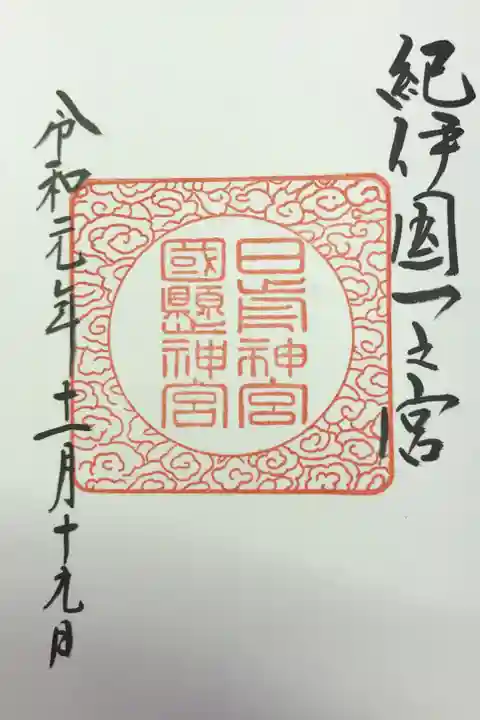 紀伊國一之宮
日前神宮
國懸神宮
令和元年十一月十九日